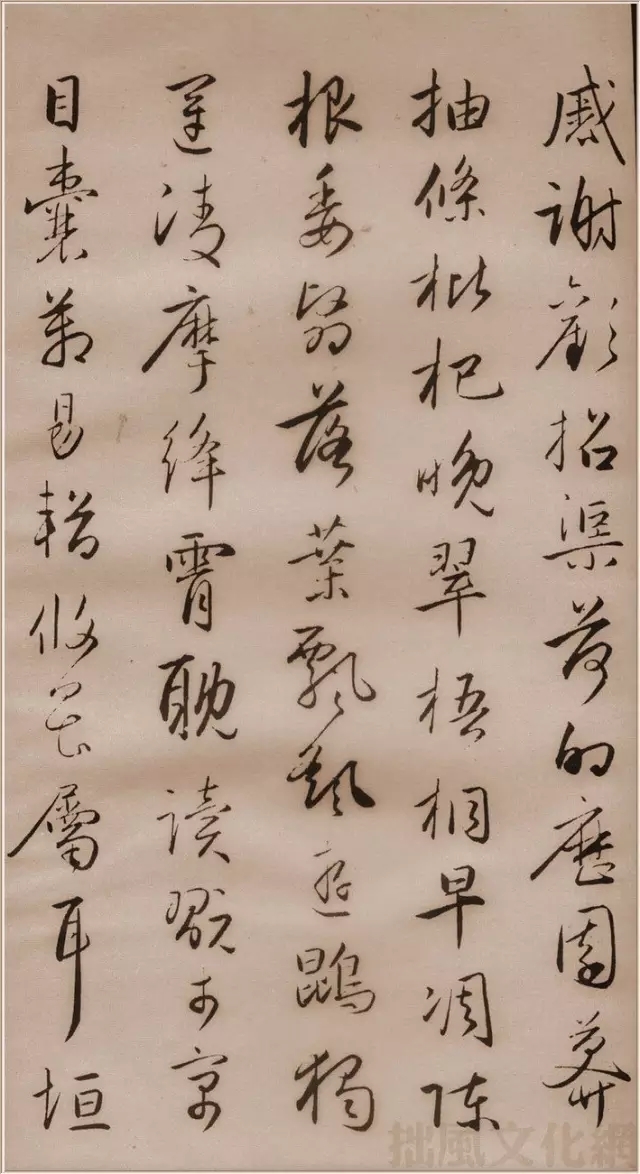 慼謝歡招渠荷的歷園莽
抽條枇杷晚翠梧桐早凋陳
根委翳落葉飄颻遊鵾獨
運淩摩絳霄耽讀翫市寓
目囊箱易輶攸畏屬耳垣
拙風文化網